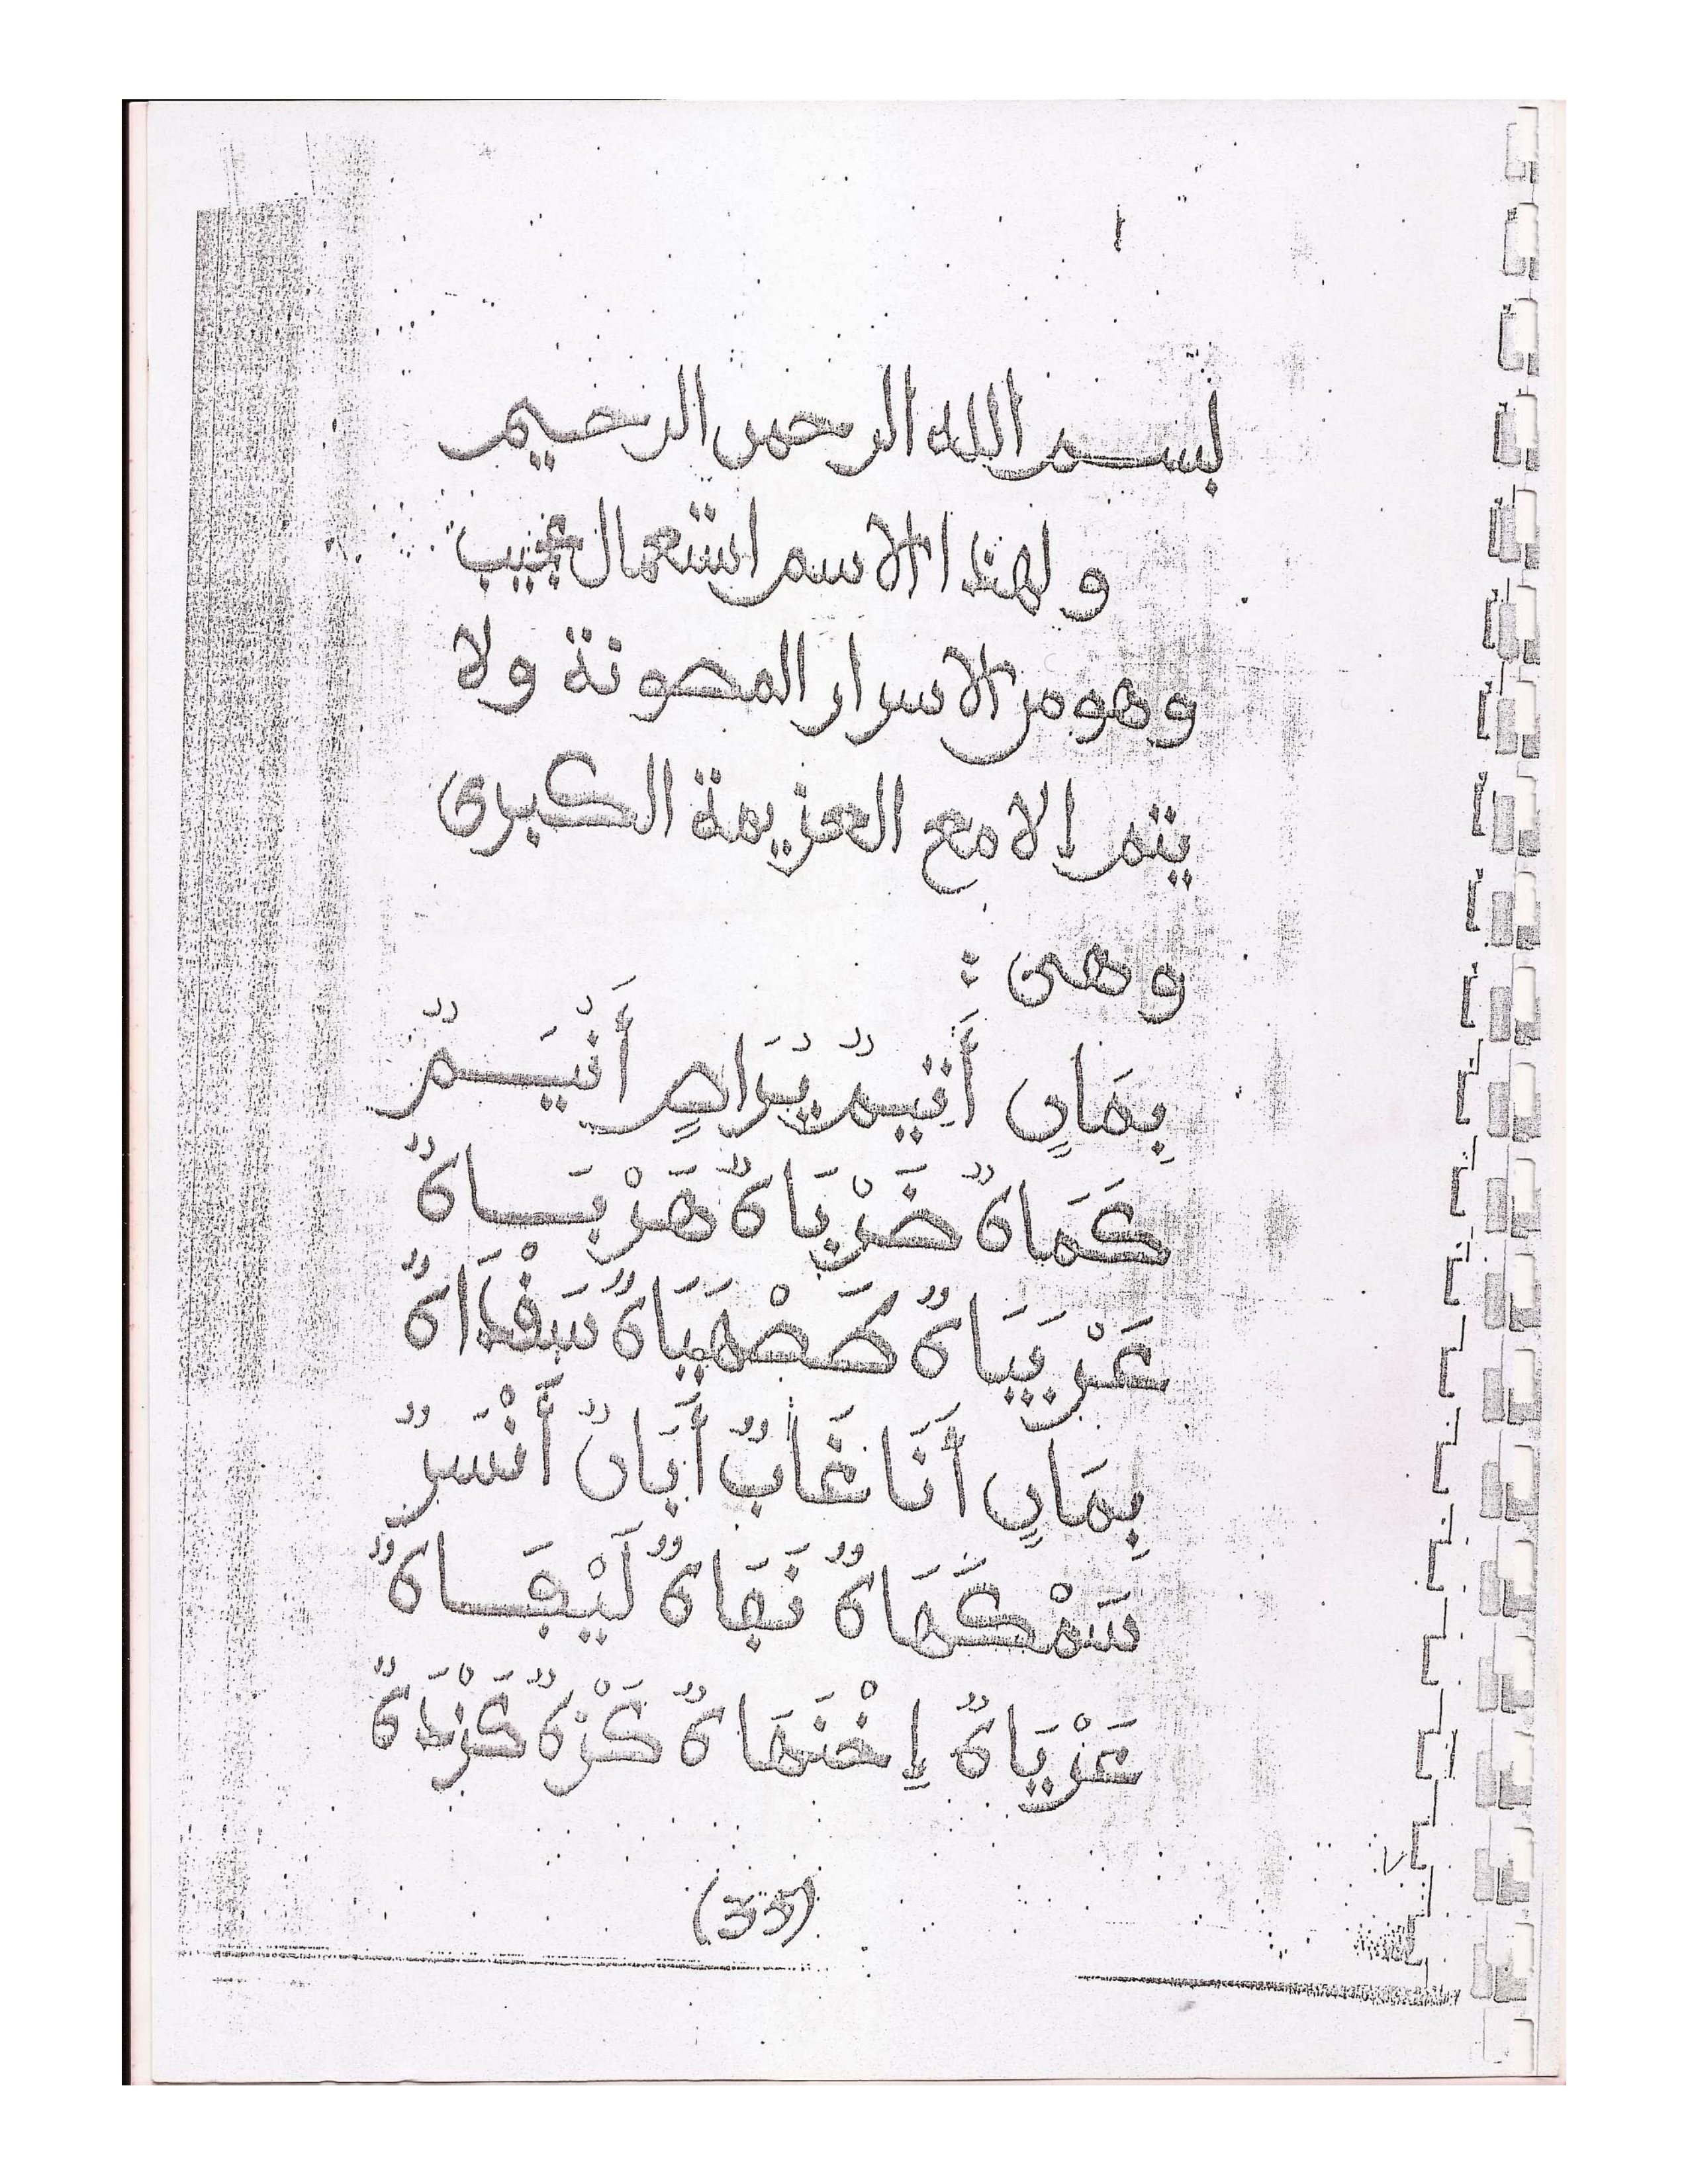 بسم الله الرحمن الرحيم
و لهذا الاسم استعمال عجيب
وهو من الاسرار المصونة ولا
يتم إلا مع العزيمة الكبرى
وهى :
بِمَانٍ أَتِيمٌ يُرَاصٍ أَنْيَمٌ
كَمَاةٌ ضَرْيَاةٌ هَرْبَاةٌ
عَرْيَيَاةٌ صَهْيَاةٌ سَفْدَاةٌ
بِمَانٍ أَنَا غَابٌ أَيَانٌ أَنْسَرٌ
سَمْكَهَاةٌ نَفَاةٌ لَيْفَاةٌ
عَزْيَاةٌ إِخْنَهَاةٌ كَزْةٌ كَزْدَةٌ
(33)